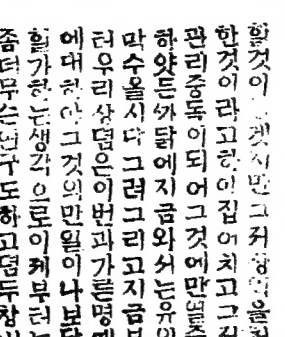 할것이 그저
한것이라고 하야 집어치고 그저
관리중독이되어 그것에만열
하얏든까닭에지금와서는유
막수올시다 그려 그리고지금
터우리상뎜은이번과가튼명
에대하야 그것의만일이나보
헐가하는생각으로이제부터
좀더무슨연구도하고뎜두창